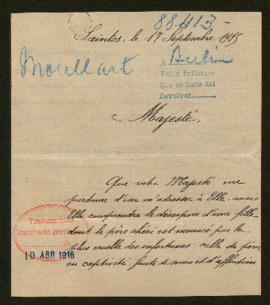 88413-
Saintes, le 17 Septembre 1915
Moullart
A Berlin
Pedir informe
Que se haga así
Devolver
Majesté,
Que votre Majesté me
pardonne d'oser m'adresser à Elle, mais
Elle comprendra le désespoir d'une fille
dont le père chéri est menacé par la
plus cruelle des infortunes celle de
en captivité faute de soins et d'affection
10 ABR 1916